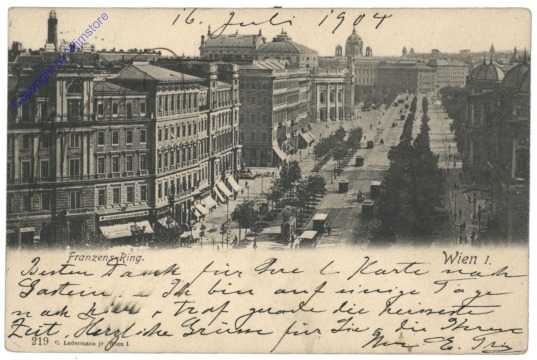 16. Juli 1904
Copyright by Wimstore
Franzens-Ring.
Wien I.
Besten Dank für Ihre l. Karte nach
Gastein, Ich bin auf einige Tage
nach hier, traf gerade die heisseste
Zeit, Herzliche Grüsse für Sie, die Ihren
219 C. Ledermann jr. Wien I.
E.